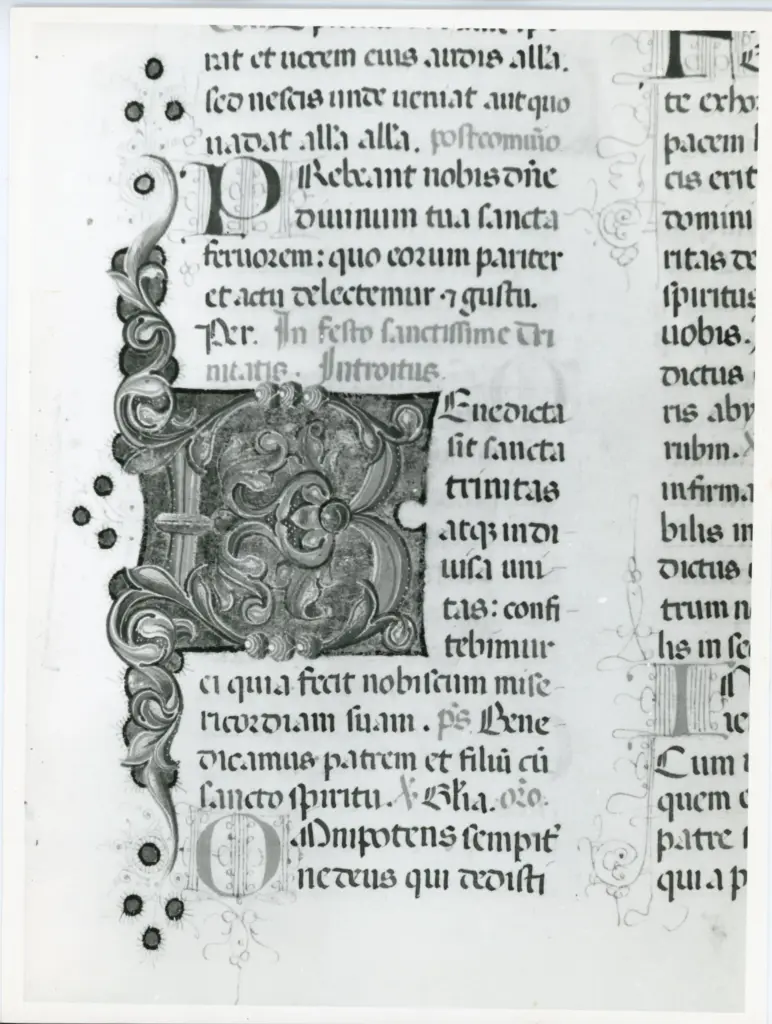 rat et uocem eius audis alľa.
sed nescis unde ueniat aut quo
uadat alľa alľa. postcomunio
PRebeant nobis dñe
diuinum tua sancta
feruorem: quo eorum pariter
et actu delectemur ⁊ gustu.
Per. In festo sanctissime tri
nitatis. Introitus.
BEnedicta
sit sancta
trinitas
atqꝫ indi
uisa uni
tas: confi
tebimur
ei quia fecit nobiscum mise
ricordiam suam. p̃s. Bene
dicamus patrem et filiũ cũ
sancto spiritu. ℣. Gľia. oro.
OMnipotens sempit̾
ne deus qui dedisti
te exho
pacem
cis erit
domini
ritas de
spiritus
uobis.
dictus
ris aby
rubin.
infirma
bilis in
dictus
trum n
lis in se
Cum
quem
patre
qui a p